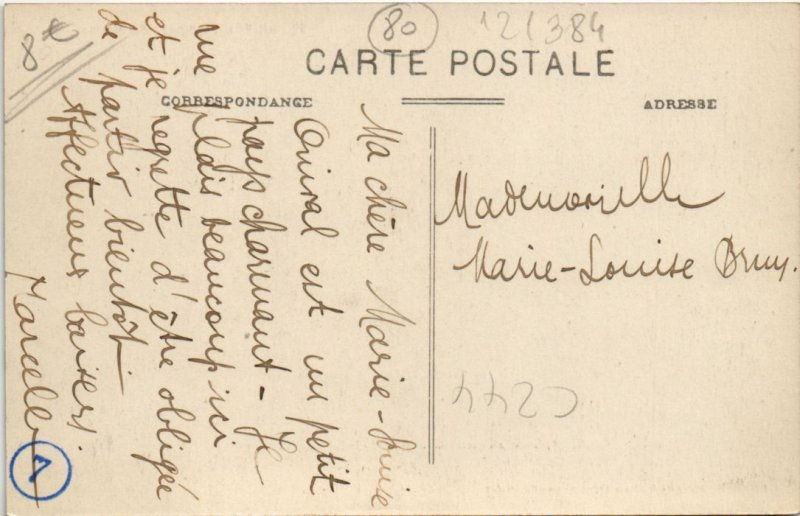 8€
80
121384
CARTE POSTALE
CORRESPONDANCE
ADRESSE
Ma chère Marie-Louise
Onival est un petit
pays charmant - Je
me plais beaucoup ici
et je regrette d'être obligée
de partir bientôt.
Affectueux baisers.
Marcelle
Mademoiselle
Marie-Louise